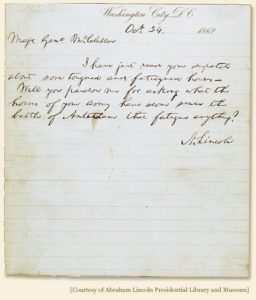 Washington City, D.C.
Oct. 24. 1862
Majr. Genl. McClellan
I have just read your despatch
about sore tongued and fatiegued horses.
Will you pardon me for asking what the
horses of your army have done since the
battle of Antietam that fatigue anything?
A. Lincoln
[Courtesy of Abraham Lincoln Presidential Library and Museum]